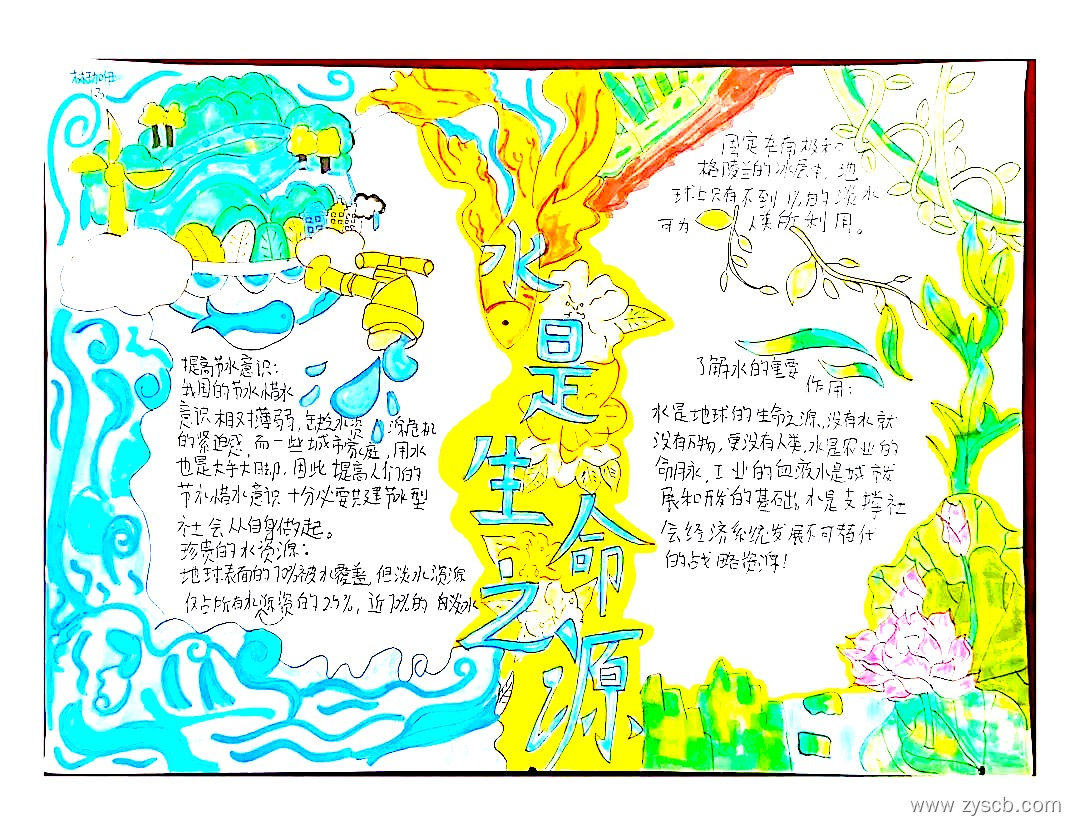 13
水是生命之源
提高节水意识：
我国的节水惜水
意识相对薄弱，缺乏水资源危机
的紧迫感，而一些城市家庭，用水
也是大手大脚，因此提高人们的
节水惜水意识十分必要共建节水型
社会从自身做起。
珍贵的水资源：
地球表面的70%被水覆盖，但淡水资源
仅占所有水资源的2.5%，近70%的淡水
固定在南极和
格陵兰的冰层中，地
球上只有不到1%的淡水
可为人类所利用。
了解水的重要
作用：
水是地球的生命之源，没有水就
没有万物，更没有人类，水是农业的
命脉，工业的血液水是城放
展和开发的基础。水是支撑社
会经济系统发展不可替代
的战略资源！
www.zyscb.com